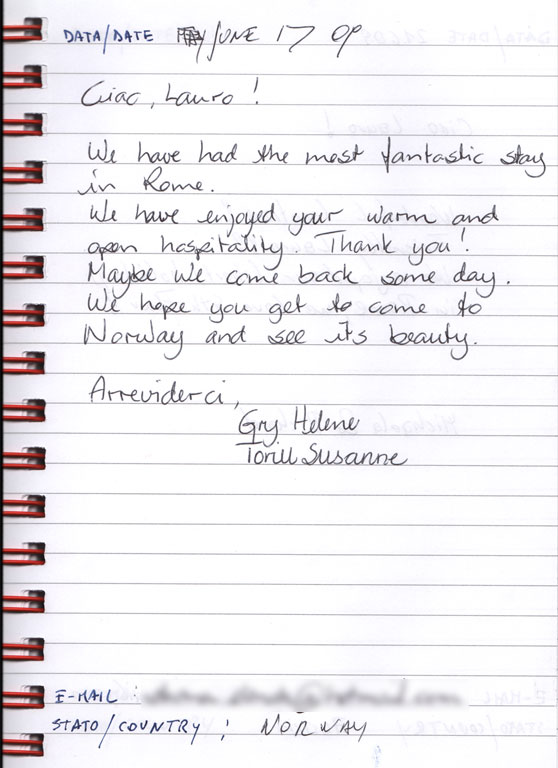 DATA/DATE JUNE 17 09
Ciao, Lauro!
We have had the most fantastic stay
in Rome.
We have enjoyed your warm and
open hospitality. Thank you!
Maybe we come back some day.
We hope you get to come to
Norway and see its beauty.
Arreviderci,
Gry Helene
Torill Susanne
E-MAIL:
STATO/COUNTRY: NORWAY